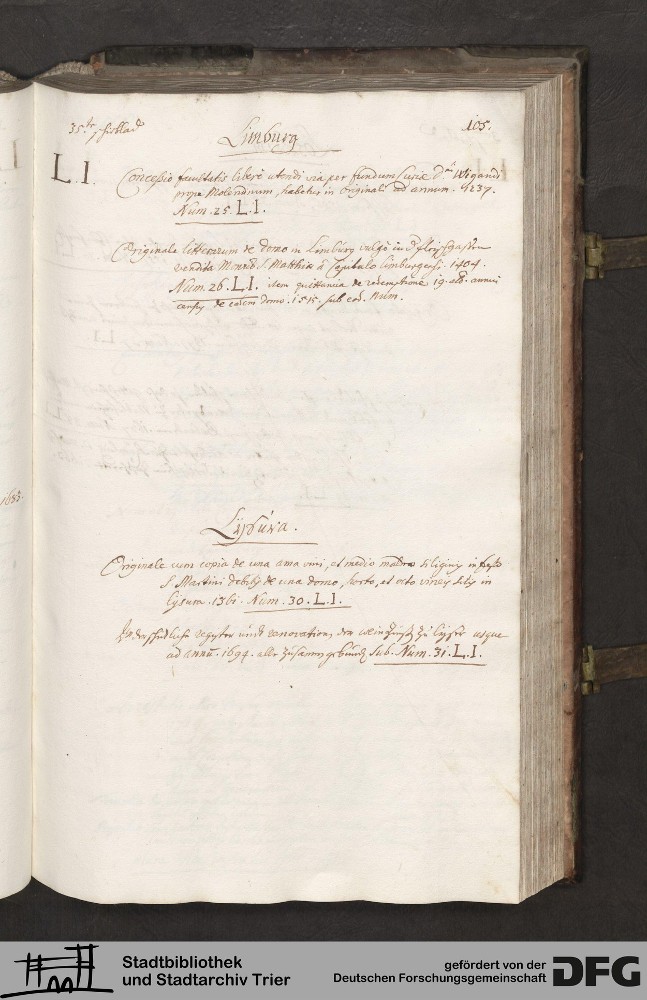 105.
Limburg
L.I.
Concessio facultatis liberè utendi via per fundum Curiæ D. Wigandi
prope Molendinum, habetur in originali ad annum 1237.
Num. 25. L.I.
Originale litterarum de domo in Limburg vulgò in
vendita Monrio S. Matthiæ à Capitulo Limburgensi. 1404.
Num. 26. L.I. item quittantia de redemptione 19. alb. annui
census de eadem domo. 1515. sub eod. Num.
1685.
Lysura.
Originale cum copia de una ama vini, et medio maldro siliginis in festo
S. Martini debitis de una domo, horto, et octo vineis sitis in
Lysura. 1361. Num. 30. L.I.
register undt renovationes zu Lysser usque
ad annu. 1694. alle zusamen gebunden sub. Num. 31. L.I.
Stadtbibliothek
und Stadtarchiv Trier
gefördert von der
Deutschen Forschungsgemeinschaft
DFG